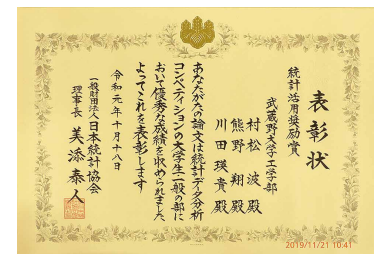 表彰状
統計活用奨励賞
武蔵野大学工学部
村松 波 殿
熊野 翔 殿
川田 瑛貴 殿
あなたがたの論文は統計データ分析
コンペティションの大学生・一般の部に
おいて優秀な成績を収められました
よってこれを表彰します
令和元年十月十八日
一般財団法人日本統計協会
理事長 美添泰人
2019/11/21 10:41